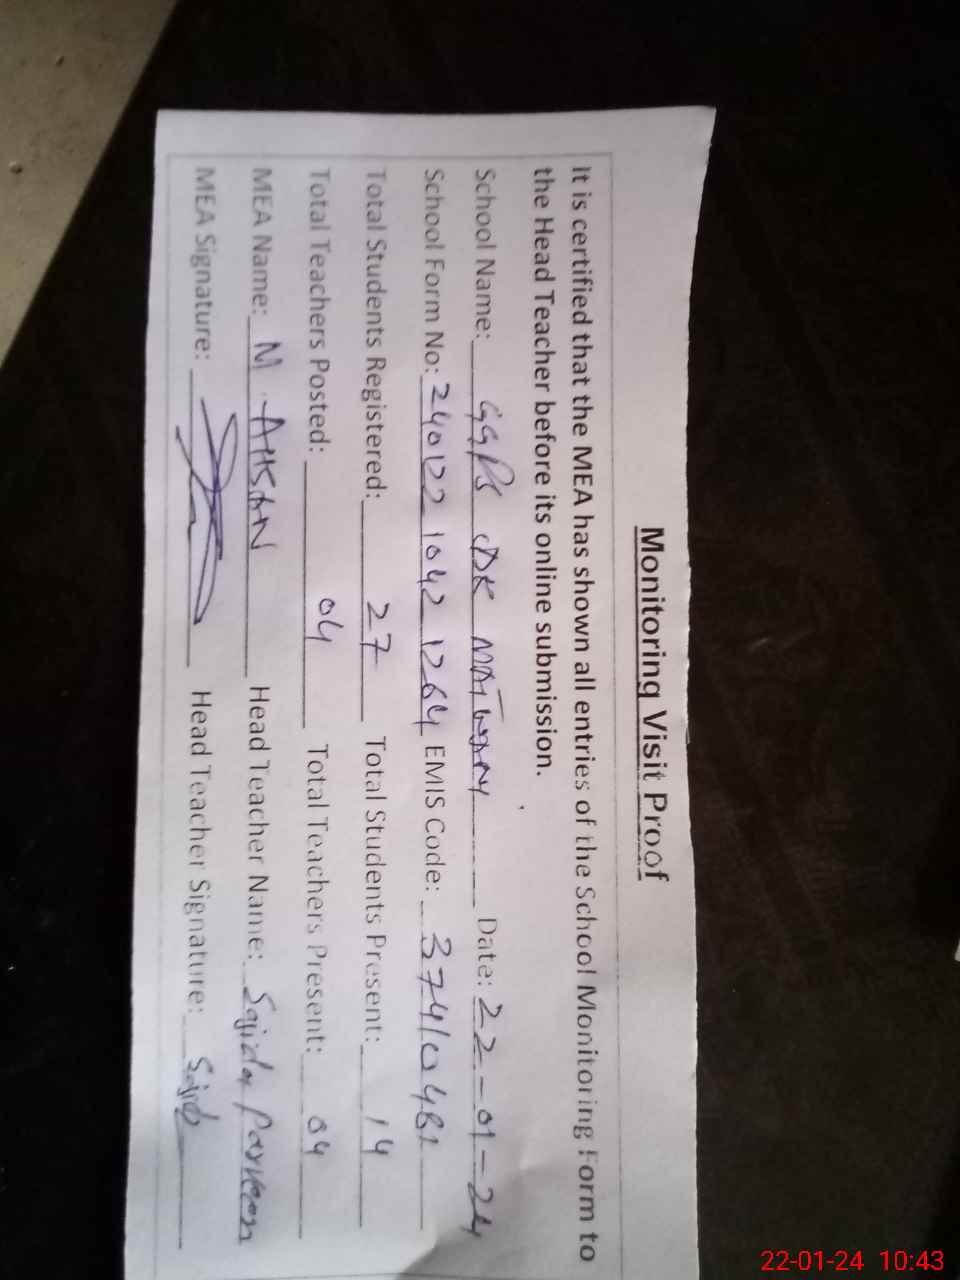 Monitoring Visit Proof
It is certified that the MEA has shown all entries of the School Monitoring Form to
the Head Teacher before its online submission.
School Name: GGPS Date: 22-01-24
School Form No: 24012210421264 EMIS Code: 37410481
Total Students Registered: 27 Total Students Present: 14
Total Teachers Posted: 04 Total Teachers Present: 04
MEA Name: M. AHSAN Head Teacher Name: Sajida Parveen
MEA Signature: Head Teacher Signature: Sajida
22-01-24 10:43